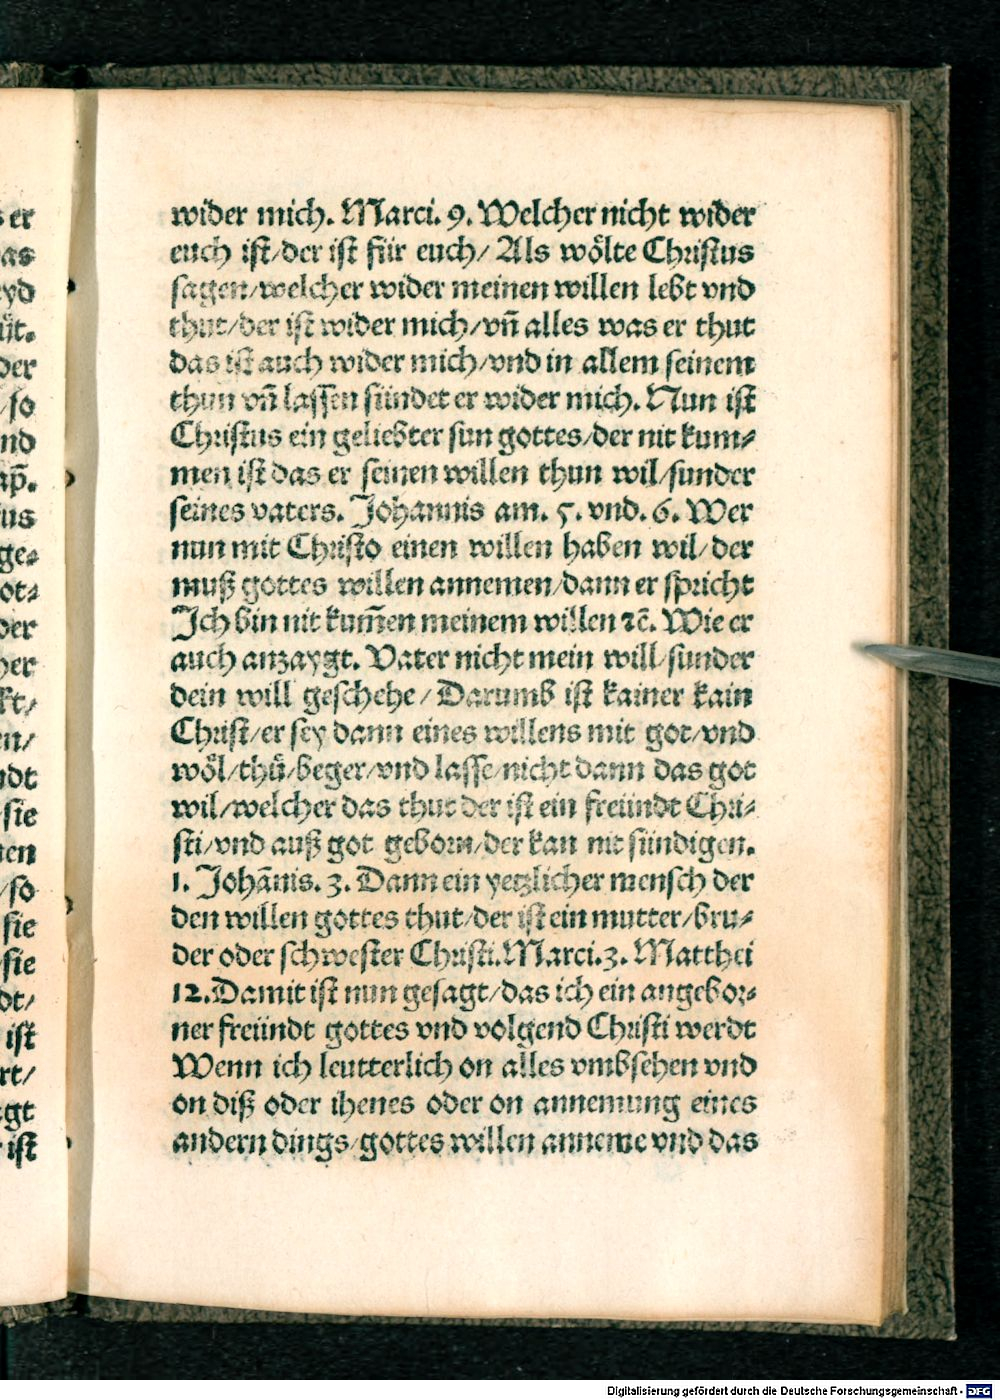 wider mich. Marci. 9. Welcher nicht wider
euch ist/der ist für euch/ Als wölte Christus
sagen/welcher wider meinen willen lebt vnd
thut/der ist wider mich/vñ alles was er thut
das ist auch wider mich/vnd in allem seinem
thun vñ lassen sündet er wider mich. Nun ist
Christus ein geliebter sun gottes/der nit kum⸗
men ist das er seinen willen thun wil/sunder
seines vaters. Johannis am. 5. vnd. 6. Wer
nun mit Christo einen willen haben wil/der
muß gottes willen annemen/dann er spricht
Ich bin nit kum̄en meinem willen ⁊c̄. Wie er
auch anzaygt. Vater nicht mein will/sunder
dein will geschehe/ Darumb ist kainer kain
Christ/er sey dann eines willens mit got/vnd
wöl/thů/beger/vnd lasse/nicht dann das got
wil/welcher das thut der ist ein freündt Chri⸗
sti/vnd auß got geborn/der kan nit sündigen.
1. Johānis. 3. Dann ein yetzlicher mensch der
den willen gottes thut/der ist ein mutter/bru⸗
der oder schwester Christi. Marci. 3. Matthei
12. Damit ist nun gesagt/das ich ein angebor⸗
ner freündt gottes vnd volgend Christi werdt
Wenn ich leutterlich on alles vmbsehen vnd
on diß oder ihenes oder on annemung eines
andern dings/gottes willen anneme vnd das
Digitalisierung gefördert durch die Deutsche Forschungsgemeinschaft - DFG